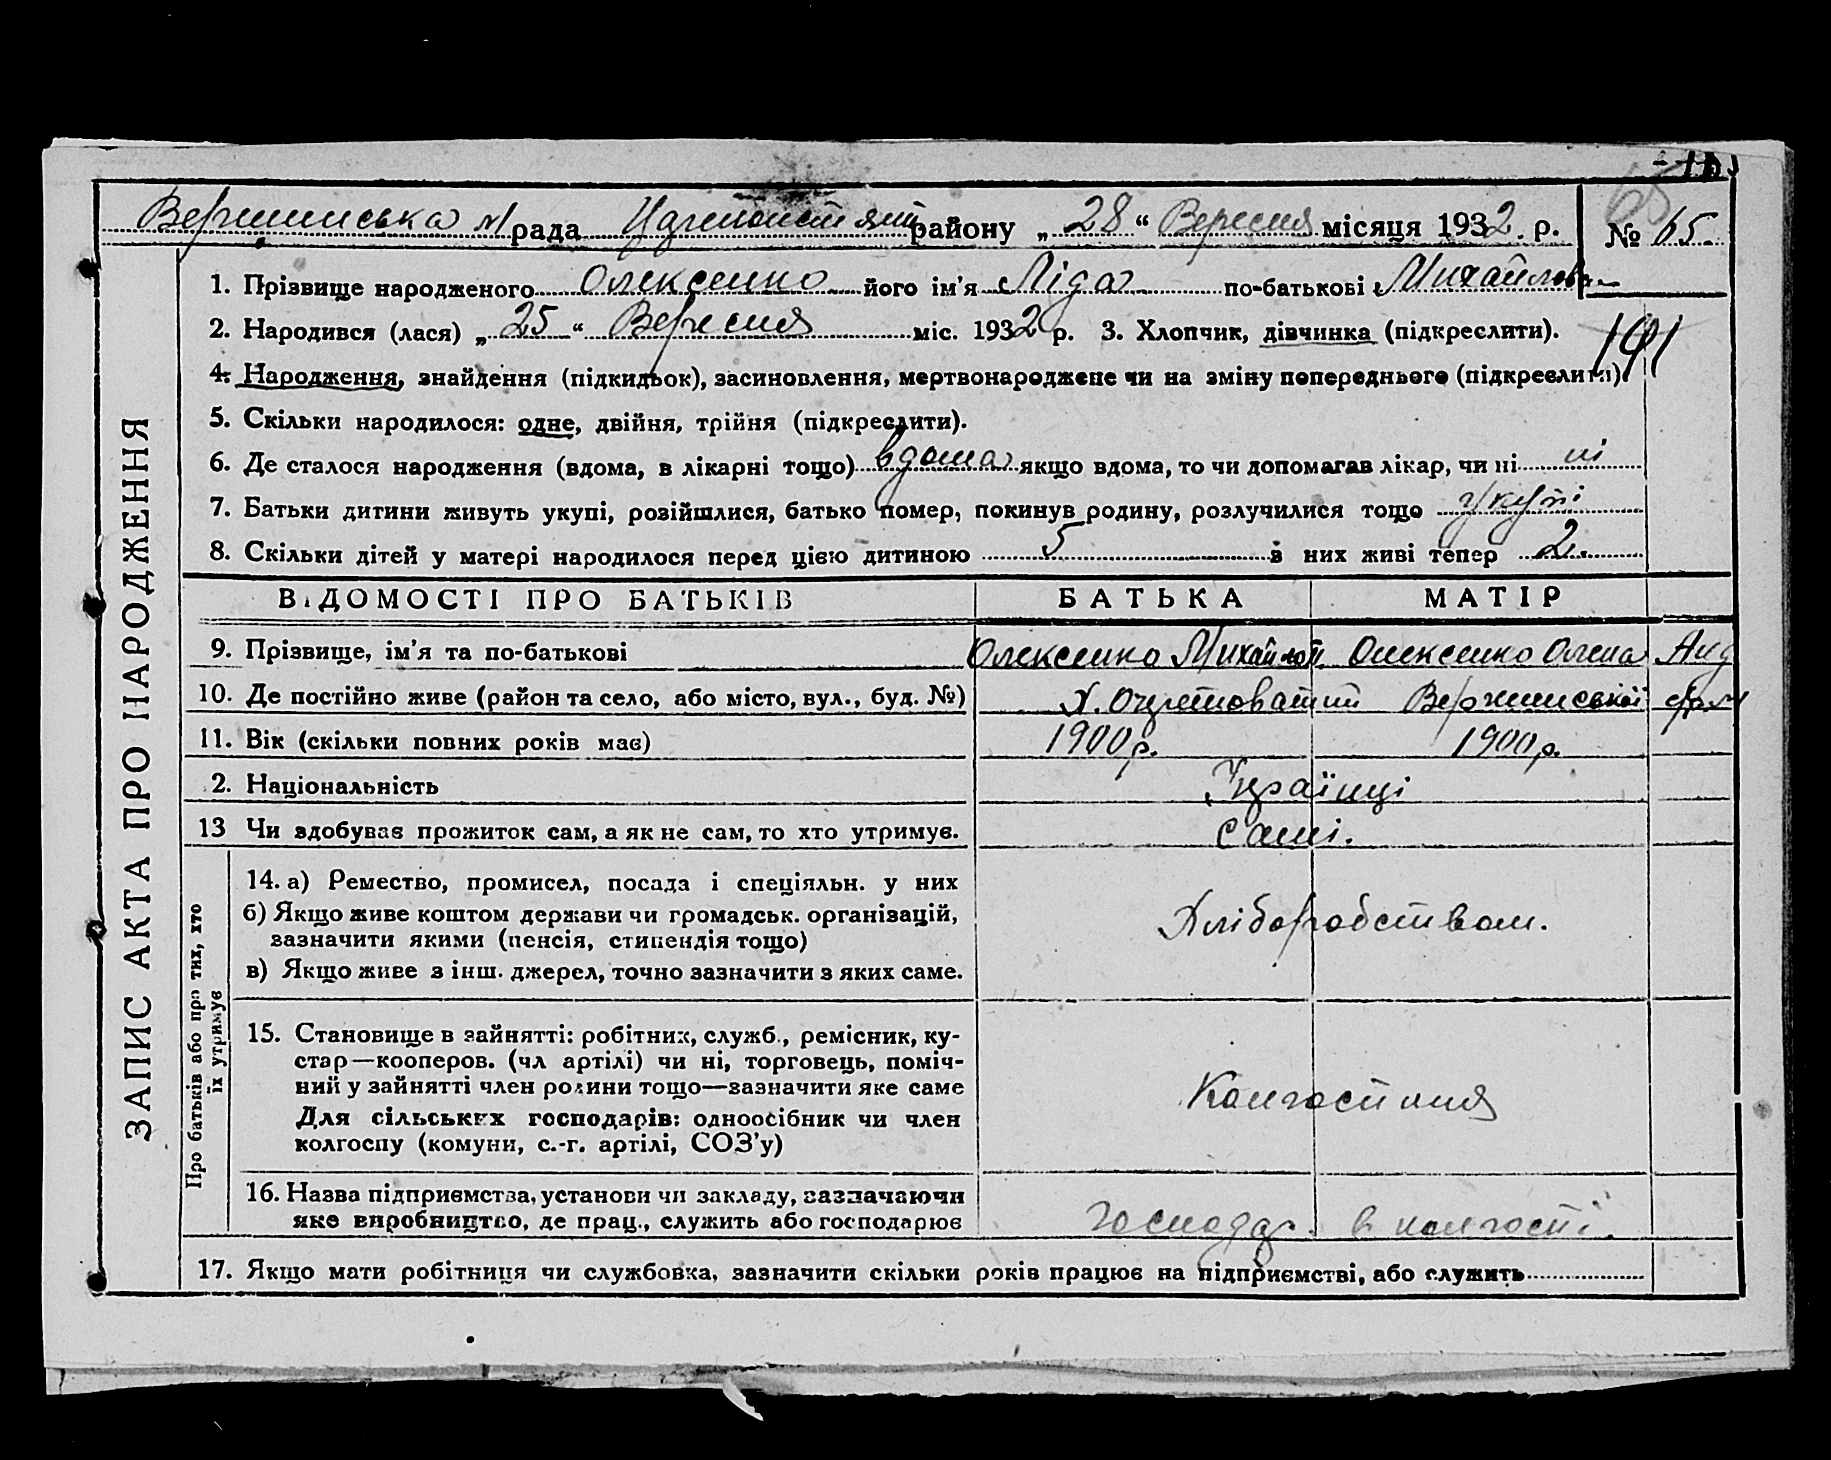 рада району „28“ Вересня місяця 1932 р. № 65
1. Прізвище народженого Олексенко його ім'я Ліда по-батькові Михайлов
2. Народився (лася) „25“ Вересня міс. 1932 р. 3. Хлопчик, дівчинка (підкреслити).
191
4. Народження, знайдення (підкидьок), засиновлення, мертвонароджене чи на зміну попереднього (підкреслити).
5. Скільки народилося: одне, двійня, трійня (підкреслити).
6. Де сталося народження (вдома, в лікарні тощо) вдома якщо вдома, то чи допомагав лікар, чи ні ні
7. Батьки дитини живуть укупі, розійшлися, батько помер, покинув родину, розлучилися тощо укупі
8. Скільки дітей у матері народилося перед цією дитиною 5 в них живі тепер 2.
ЗАПИС АКТА ПРО НАРОДЖЕННЯ
ВІДОМОСТІ ПРО БАТЬКІВ БАТЬКА МАТІР
9. Прізвище, ім'я та по-батькові Олексенко Михайло Олексенко Олена Анд
10. Де постійно живе (район та село, або місто, вул., буд. №) х.
11. Вік (скільки повних років має) 1900 р. 1900 р.
2. Національність Українці
13 Чи здобуває прожиток сам, а як не сам, то хто утримує. Самі.
Про батьків або про тих, хто
їх утримує
14. а) Ремество, промисел, посада і спеціяльн. у них
б) Якщо живе коштом держави чи громадськ. організацій,
зазначити якими (пенсія, стипендія тощо)
Хліборобством.
в) Якщо живе з інш. джерел, точно зазначити з яких саме.
15. Становище в зайнятті: робітник, служб., ремісник, ку-
стар—кооперов. (чл артілі) чи ні, торговець, поміч-
ний у зайнятті член родини тощо—зазначити яке саме
Для сільських господарів: одноосібник чи член
колгоспу (комуни, с.-г. артілі, СОЗ'у)
16. Назва підприємства, установи чи закладу, зазначаючи
яке виробництво, де прац., служить або господарює господар. в колгоспі.
17. Якщо мати робітниця чи службовка, зазначити скільки років працює на підприємстві, або служить